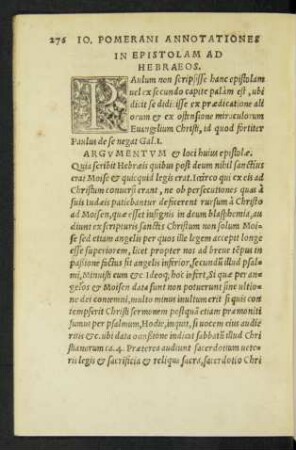 276 IO. POMERANI ANNOTATIONES
IN EPISTOLAM AD
HEBRAEOS.
PAulum non scripsisse hanc epistolam
uel ex secundo capite palàm est, ubi
dicit se didicisse ex prædicatione ali
orum & ex ostensione miraculorum
Euangelium Christi, id quod fortiter
Paulus de se negat Gal. 1.
ARGVMENTVM & loci huius epistolæ.
Quia scribit Hebræis quibus post deum nihil sanctius
erat Mose & quicquid legis erat. Iccirco qui ex eis ad
Christum conuersi erant, ne ob persecutiones quas à
suis iudæis patiebantur deficerent rursum à Christo
ad Moisen, quæ esset insignis in deum blasphemia, au
diunt ex scripturis sanctis Christum non solum Moi
se sed etiam angelis per quos ille legem accepit longe
esse superiorem, licet propter nos ad breue tẽpus in
passione factus sit angelis inferior, secundũ illud psal
mi, Minuisti eum &c Ideoq; hoc infert, Si quæ per an
gelos & Moisen data sunt non potuerunt sine ultio
ne dei contemni, multo minus inultum erit si quis con
tempserit Christi sermonem postquã etiam præmoniti
sumus per psalmum, Hodie, inquit, si uocem eius audie
ritis &c. ubi data occasione indicat sabbatũ illud Chri
stianorum ca. 4. Præterea audiunt sacerdotium uete
ris legis & sacrificia & reliqua sacra, sacerdotio Chri